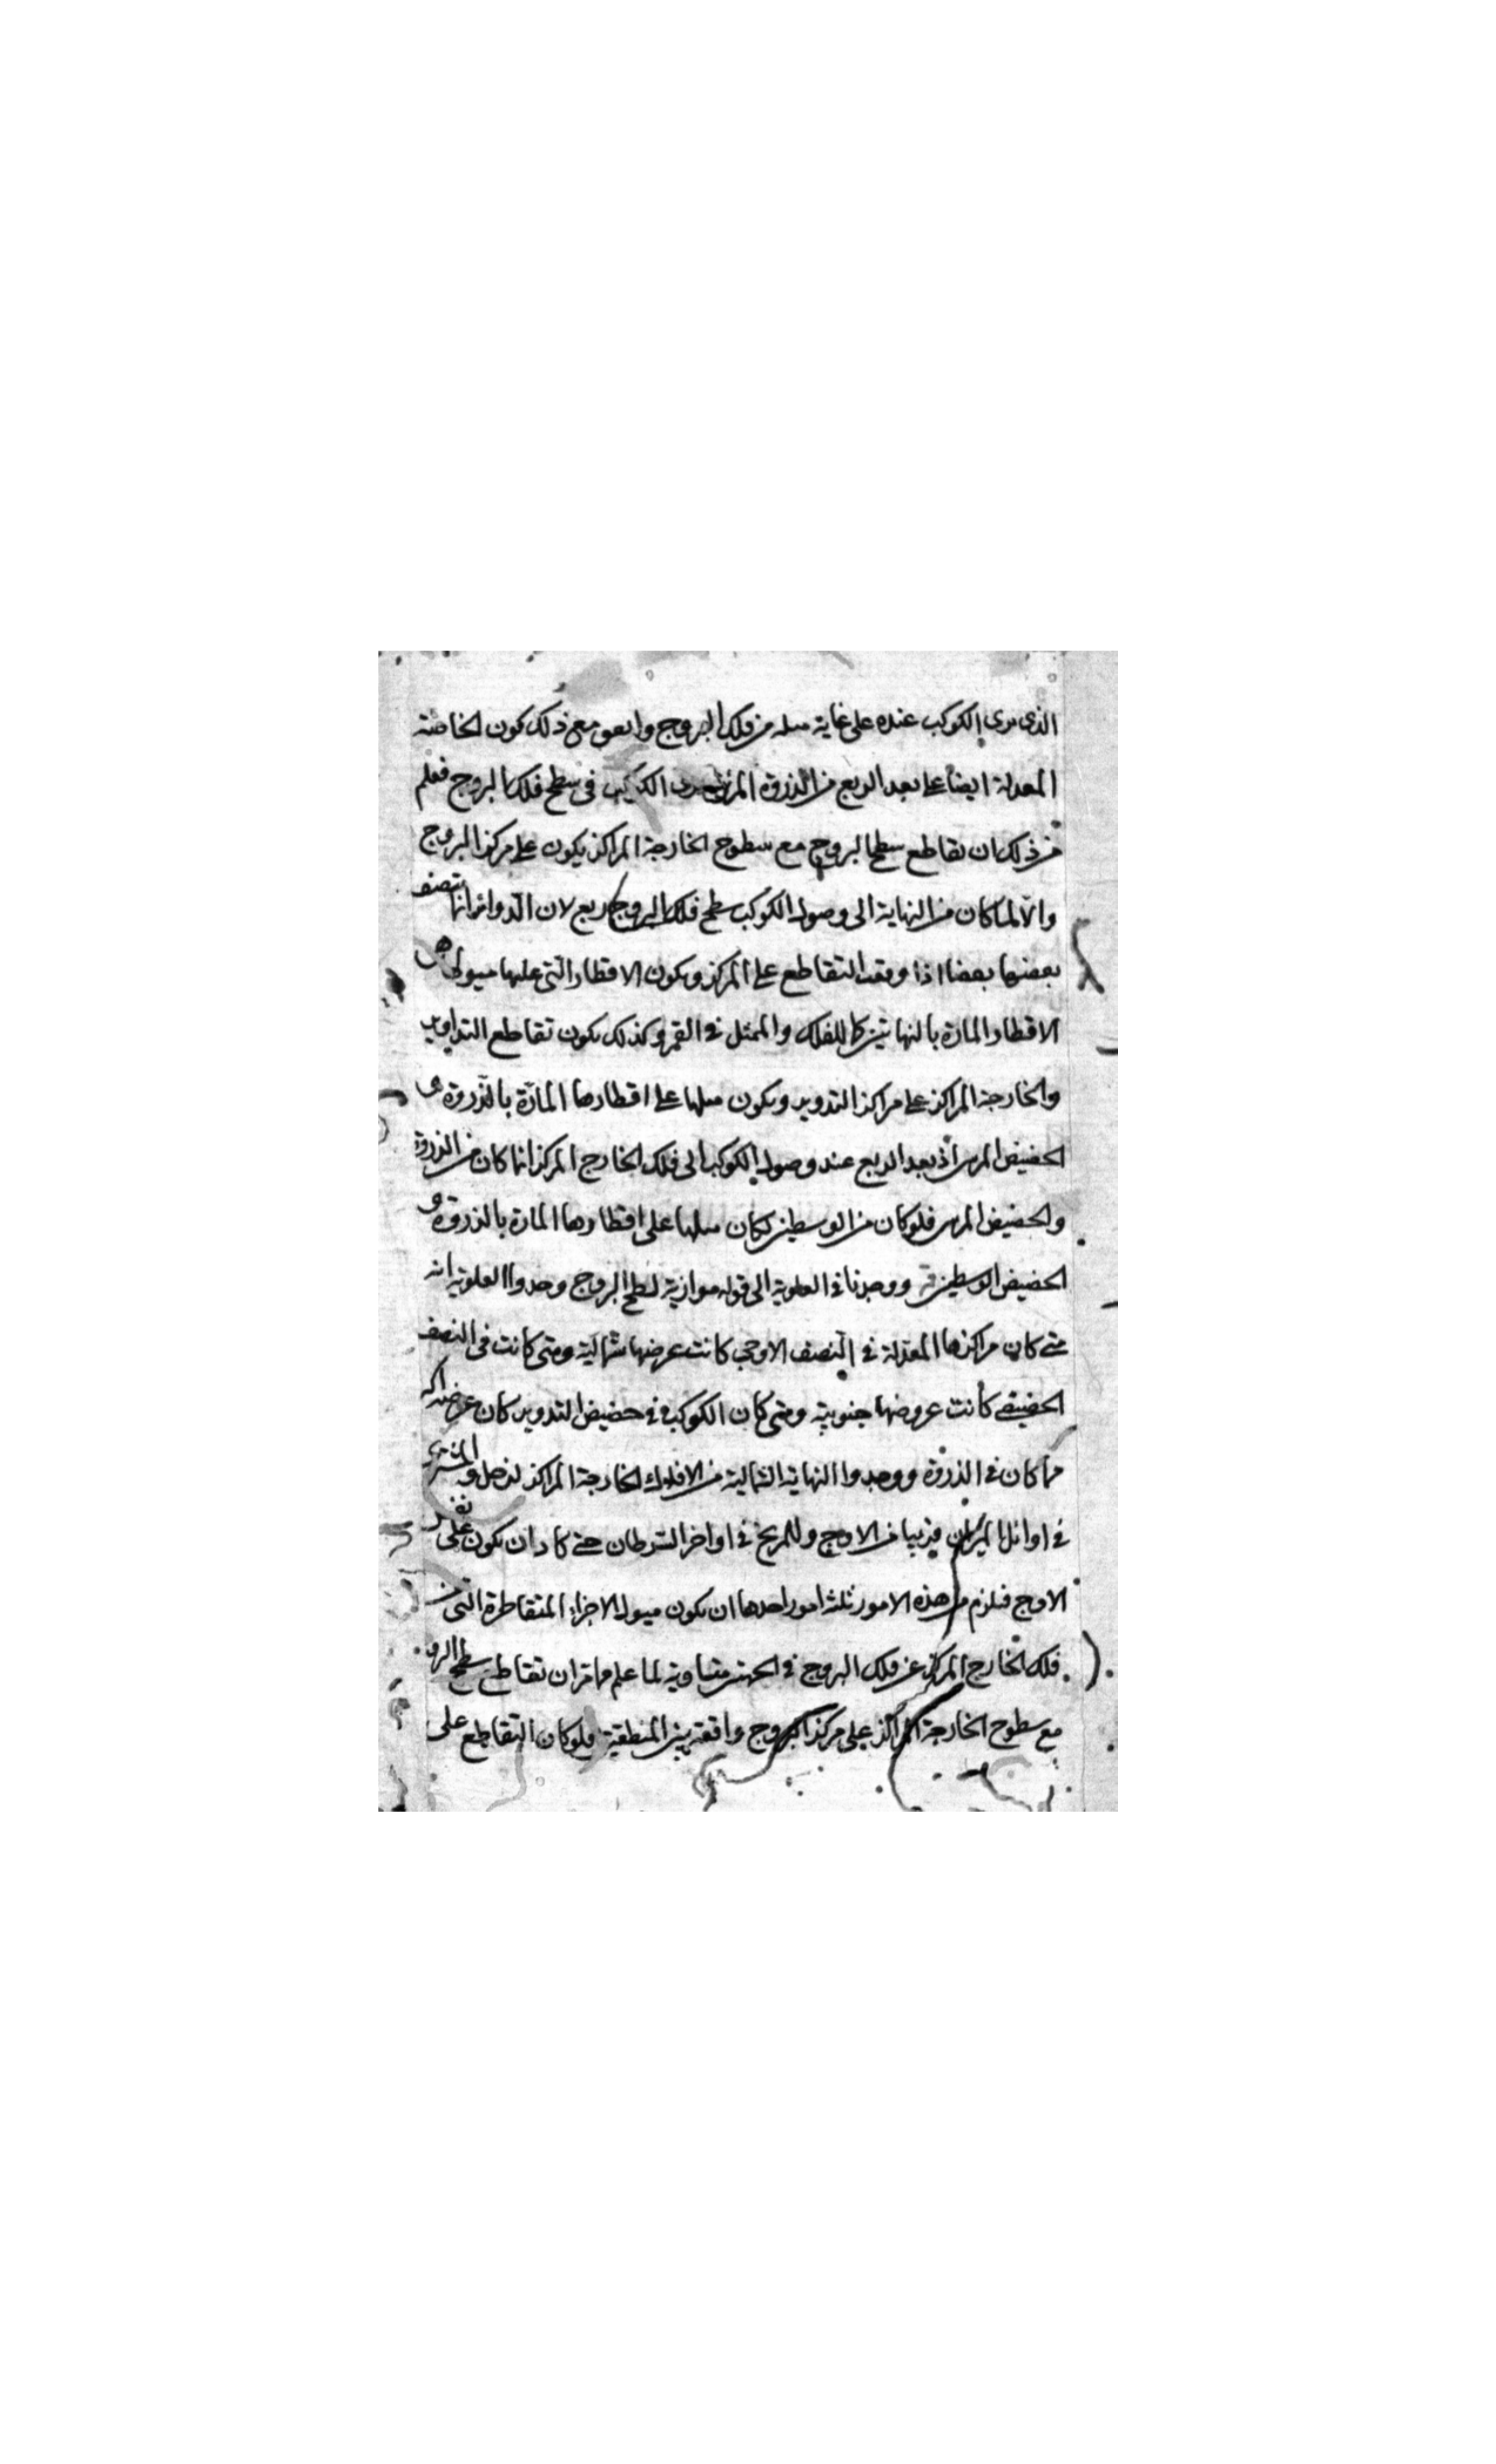 الذى يرى الكوكب عنده على غاية ميله من فلك البروج واتفق مع ذلك كون الخاصّة
المعدلة ايضا على بعد الربع من الذروة المرئية الكوكب فى سطح فلك البروج فعلم
من ذلك ان تقاطع سطح البروج مع سطوح الخارجة المراكز يكون على مركز البروج
والّا لما كان من النهاية الى وصول الكوكب سطح فلك البروج ربع لان الدوائر انما تنصف
بعضها بعضا اذا وقعت التقاطع على المركز ويكون الاقطار التى عليها ميول هى
الاقطار المارة بالنهايتين كما للفلك والممثل فى القمر وكذلك يكون تقاطع التداوير
والخارجة المراكز على مراكز التدوير ويكون ميلها على اقطارها المارّة بالذروة و
الحضيض المرئى اذ بعد الربع عند وصول الكوكب الى فلك الخارج المركز انما كان من الذروة
والحضيض المرئى فلو كان من الوسطين لكان ميلها على اقطارها المارة بالذروة و
الحضيض الوسطين ووجدنا فى العلوية الى قوله موازية لسطح البروج وجدوا العلوية انه
متى كان مراكزها المعدّلة فى النصف الاوجى كانت عرضها شمالية ومتى كانت فى النصف
الحضيضى كانت عروضها جنوبية ومتى كان الكوكب فى حضيض التدوير كان عرضه اكثر
مما كان فى الذروة ووجدوا النهاية الشمالية من الافلاك الخارجة المراكز لزحل والمشترى
فى اوائل الميزان قريبا من الاوج وللمريخ فى اواخر السرطان حتى كاد ان يكون على نفس
الاوج فيلزم من هذه الامور ثلثة امور احدها ان يكون ميول الاجزاء المتقاطرة التى من
فلك الخارج المركز عن فلك البروج فى الجهتين متساوية لما علم مما مر ان تقاطع سطح البروج
مع سطوح الخارجة المراكز على مركز البروج واقعة بين المنطقية فلو كان التقاطع على